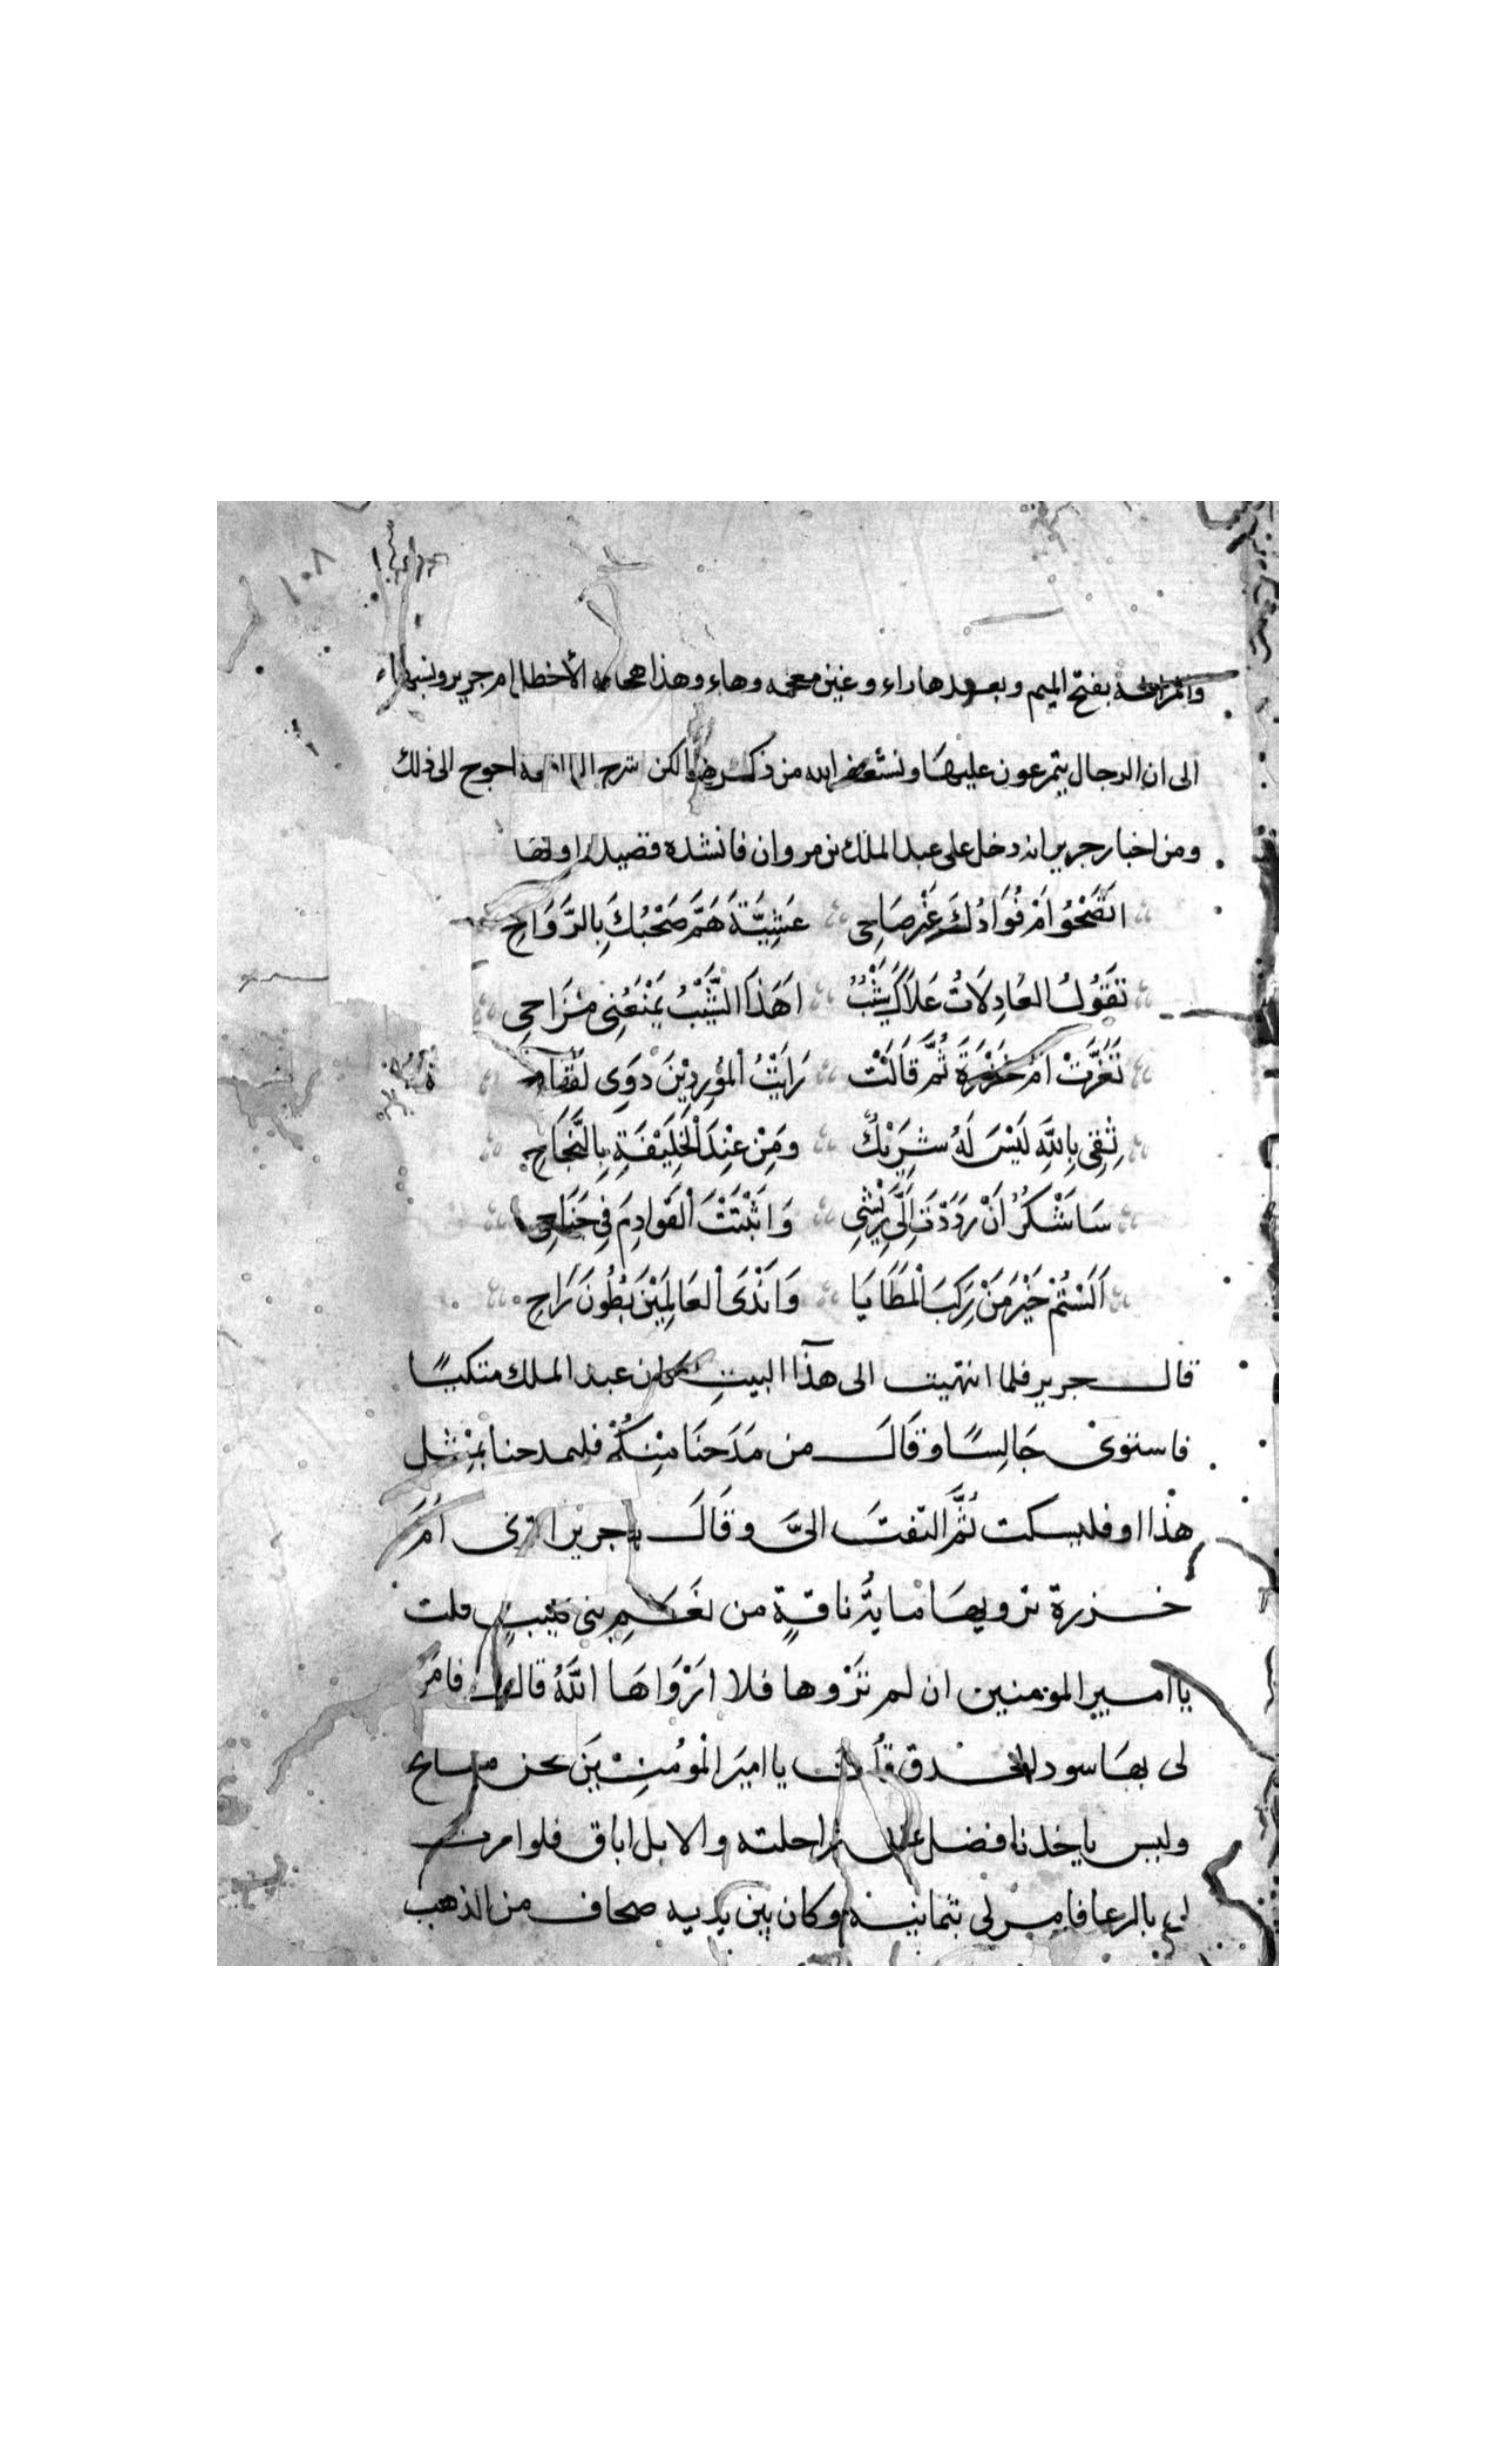 ١٠٨
والمراغة بفتح الميم وبعدها راء وغين معجمه وهاء وهذا هجا به الأخطل ام جرير ونسبها
الى ان الرجال يتمرغون عليها ونستغفر الله من ذكر هذا لكن شرح احوج الى ذلك
ومن اخبار جرير انه دخل على عبد الملك بن مروان فانشده قصيدة اولها
اتَصْحُوا امْ فُوَادُكَ غَيْرُ صَاحِى عَشِيَّةَ هَمَّ صَحْبُكَ بِالرَّوَاحِ
تَقُولُ العَاذِلَاتُ عَلَاكَ شَيْبٌ اهَذَا الشَّيْبُ يَمْنَعُنِى مِزَاحِى
تَعَزَّتْ امُّ حَزْرَةَ ثُمَّ قَالَتْ رَايْتُ الْمُورِدِيْنَ ذَوِى لقَاح
ثِقِى بِاللَّهِ لَيْسَ لَهُ شَرِيْكٌ وَمِنْ عِنْدِ الْخَلِيْفَةِ بِالنَّجَاحِ
سَاشْكُرُ انْ رَدَدْتَ الَىَّ رِيْشِى وَاثْبَتَّ الْقَوَادِمَ فِى جَنَاحِى
اَلَسْتُمْ خَيْرَ مَنْ رَكِبَ الْمَطَايَا وَانْدَى الْعَالَمِيْنَ بُطُونَ رَاحِ
قال جرير فلما انتهيت الى هذا البيت كان عبد الملك متكيًا
فاستوى جَالِسًا وقَالَ من مَدَحَنَا مِنْكُمْ فليمدحنا بمِثْل
هذا او فليسكت ثُمَّ التفتَ الىَّ وقَالَ يا جرير اترى امَّ
حزرة ترويها مايةُ ناقةٍ من نَعَمِ بنى قلت
يا امير المومنين ان لم تَرْوها فلا ارْوَاهَا اللَّهُ قال فامرَ
لى بها سود الحدق قلت يا اميرَ الْمُومنِيْنَ نحن مشايخ
وليس باحدنا فضل عن راحلته والابل اباق فلو امرت
لى بالرعا فامر لى بثمانية وكان بين يديه صحاف من الذهب